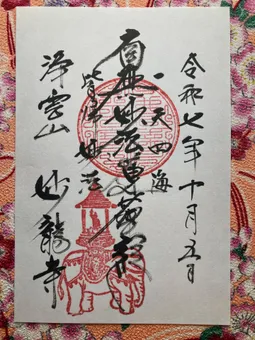 令和七年十月五日
一天四海
南無妙法蓮華経
皆帰妙法
浄雲山 妙龍寺